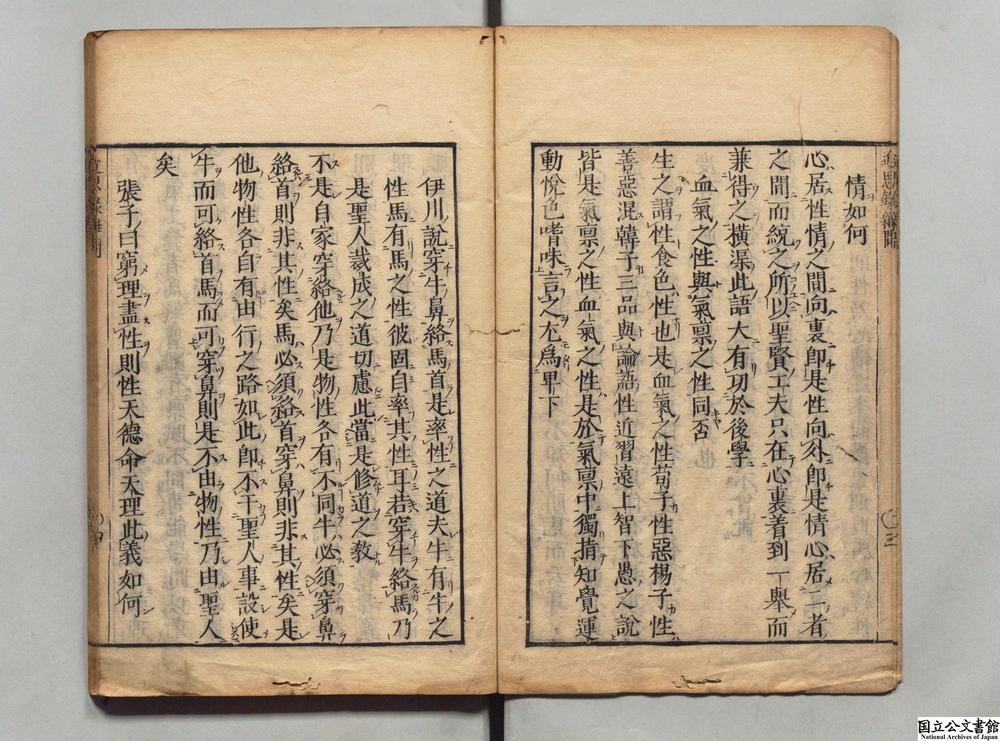 情如何
心居性情之間向裏卽是性向外卽是情心居二者
之間而統之所以聖賢工夫只在心裏着到一舉而
兼得之橫渠此語大有功於後學
血氣之性與氣禀之性同否
生之謂性食色性也是血氣之性荀子性惡楊子性
善惡混韓子三品與論語性近習遠上智下愚之說
皆是氣禀之性血氣之性是於氣禀中獨揹知覺運
動悅色嗜味言之尤爲卑下
伊川說穿牛鼻絡馬首是率性之道夫牛有牛之
性馬有馬之性彼固自率其性耳若穿牛絡馬乃
是聖人裁成之道切慮此當是修道之敎
不是自家穿絡他乃是物性各有不同牛必須穿鼻
絡首則非其性矣馬必須絡首穿鼻則非其性矣是
他物性各自有由行之路如此卽不干聖人事設使
牛而可絡首馬而可穿鼻則是不由物性乃由聖人
矣
張子曰窮理盡性則性天德命天理此義如何
国立公文書館
National Archives of Japan